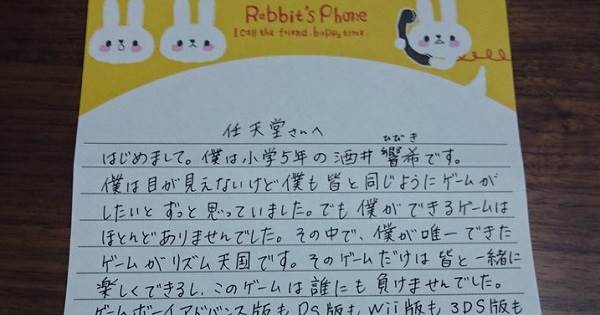 Rabbit's Phone
I call the friend. happy time.
任天堂さんへ
ひびき
はじめまして。僕は小学5年の酒井響希です。
僕は目が見えないけど僕も皆と同じようにゲームが
したいとずっと思っていました。でも僕ができるゲームは
ほとんどありませんでした。その中で、僕が唯一できた
ゲームがリズム天国です。そのゲームだけは皆と一緒に
楽しくできるし、このゲームは誰にも負けませんでした。
ゲームボーイアドバンス版もDS版もWii版も3DS版も